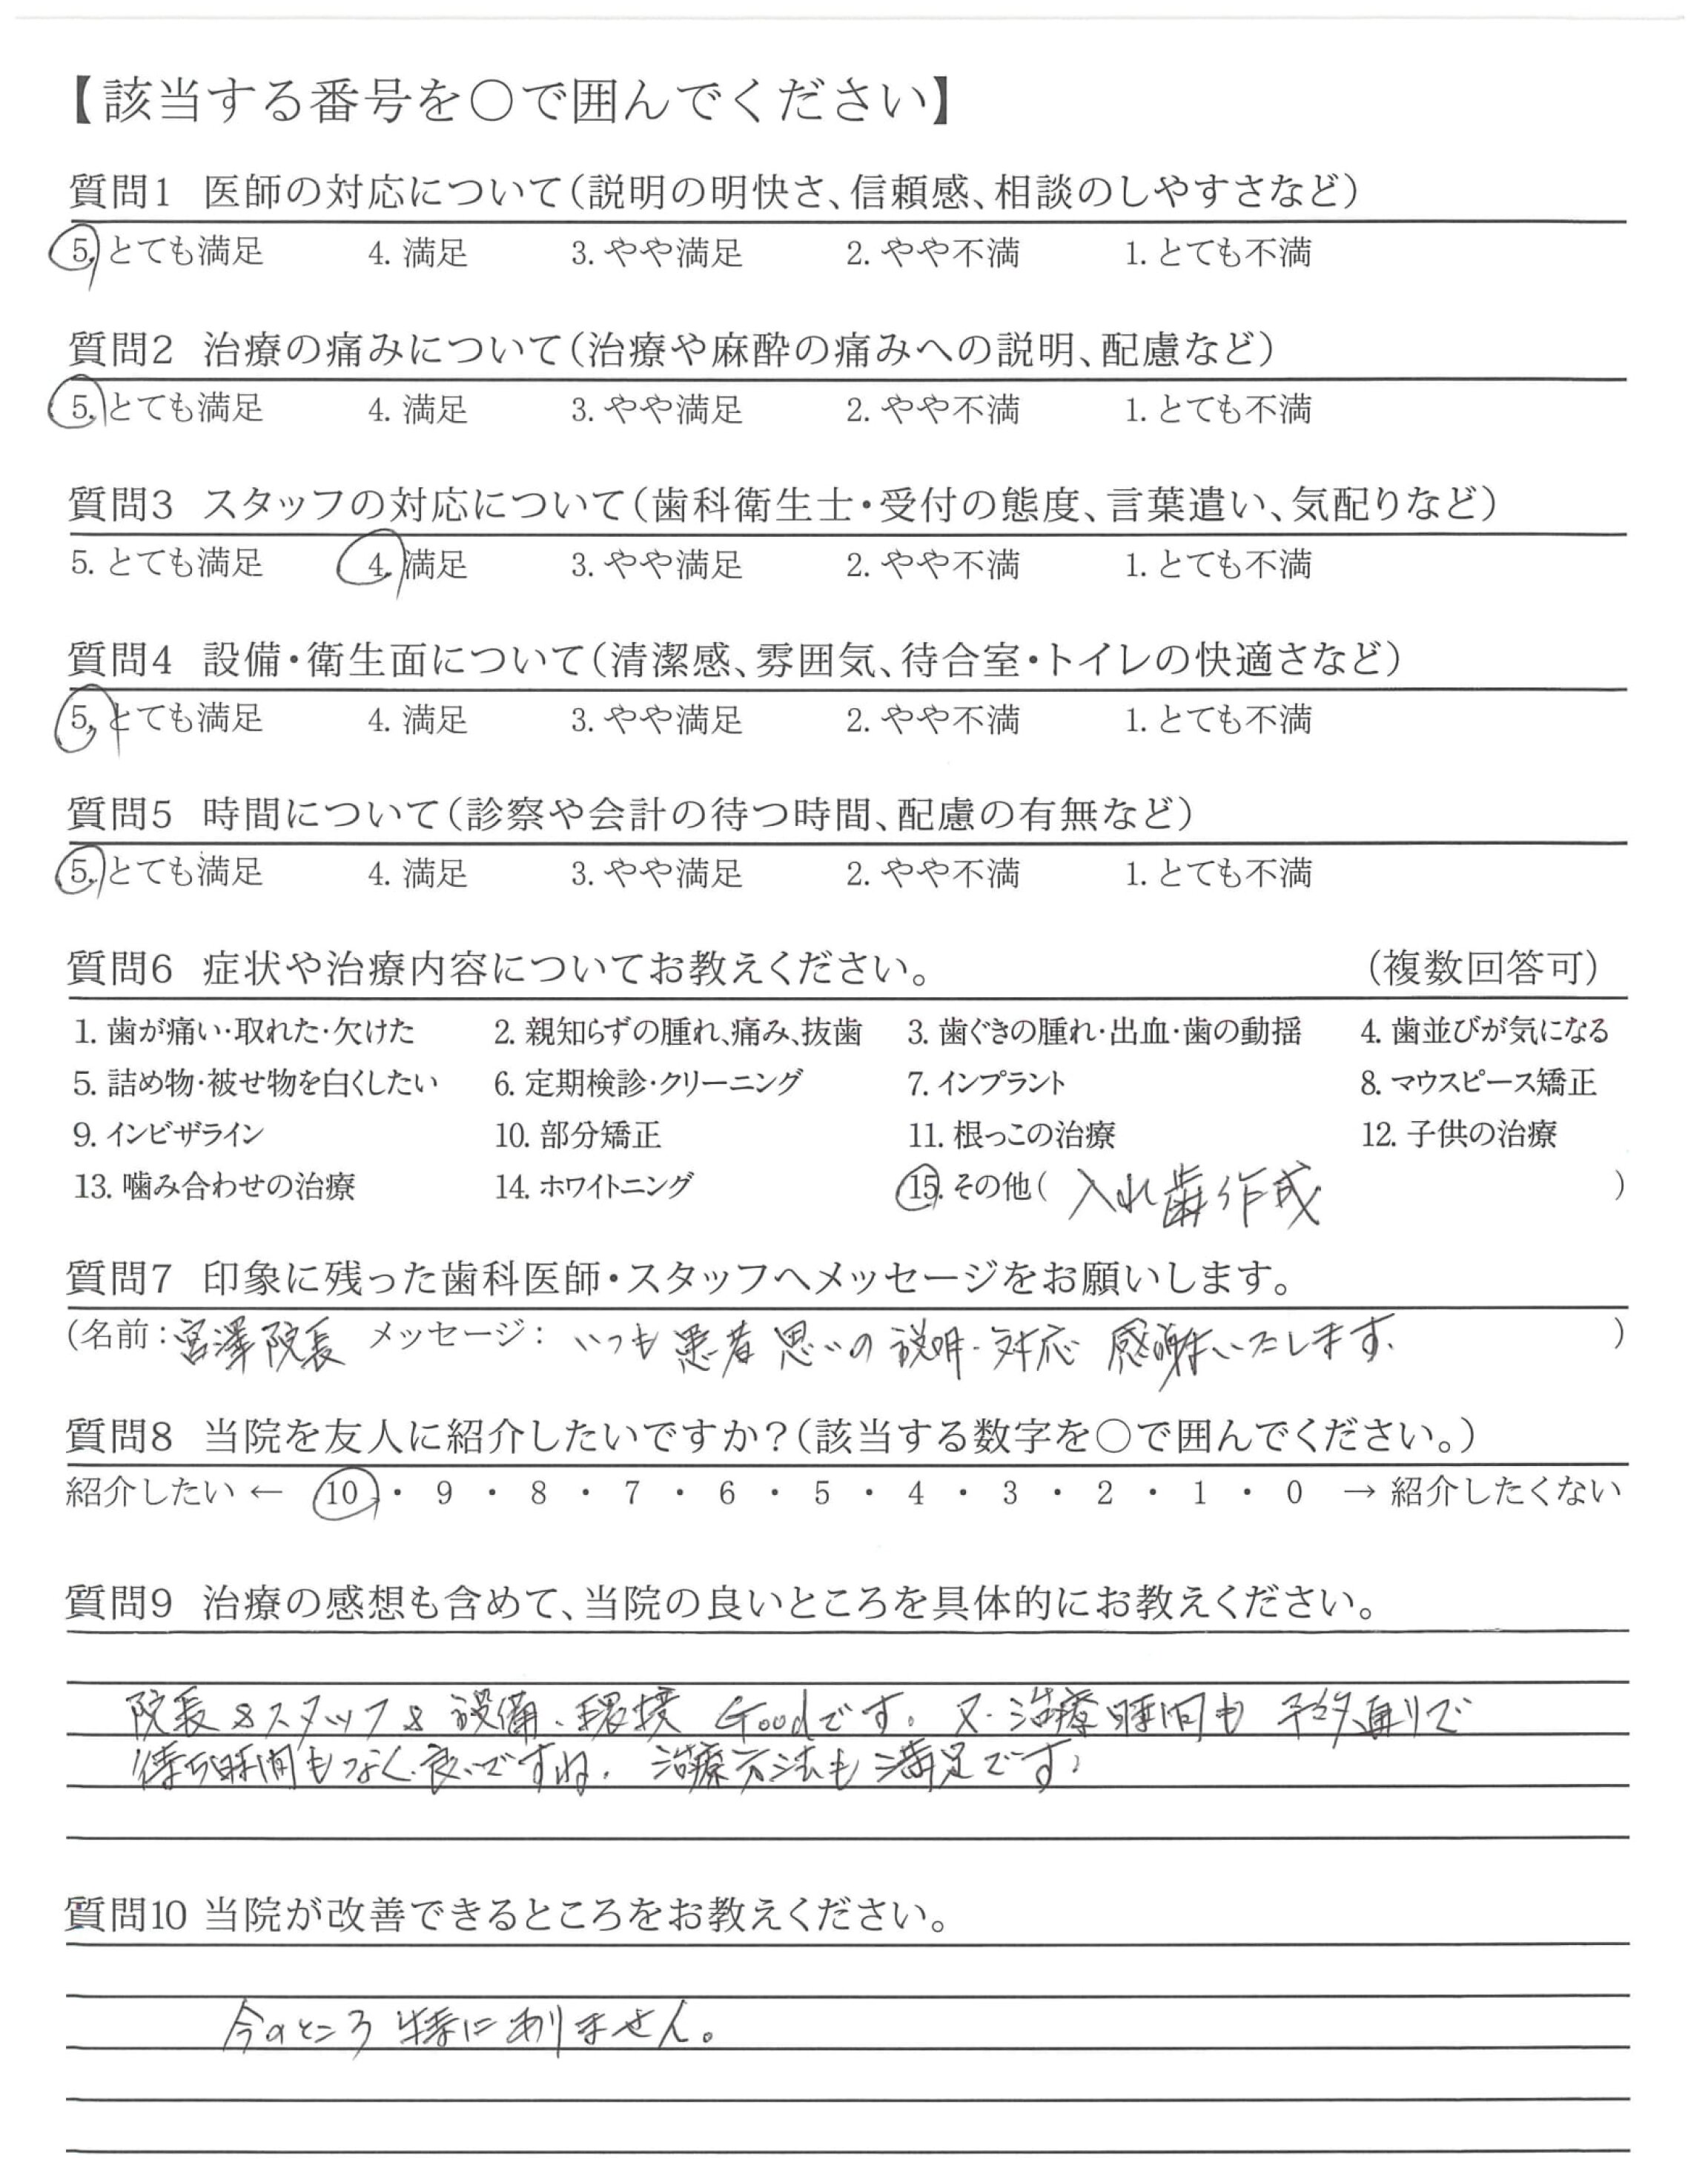 【該当する番号を○で囲んでください】
質問1 医師の対応について(説明の明快さ、信頼感、相談のしやすさなど)
5. とても満足 4. 満足 3. やや満足 2. やや不満 1. とても不満
質問2 治療の痛みについて(治療や麻酔の痛みへの説明、配慮など)
5. とても満足 4. 満足 3. やや満足 2. やや不満 1. とても不満
質問3 スタッフの対応について(歯科衛生士・受付の態度、言葉遣い、気配りなど)
5. とても満足 4. 満足 3. やや満足 2. やや不満 1. とても不満
質問4 設備・衛生面について(清潔感、雰囲気、待合室・トイレの快適さなど)
5. とても満足 4. 満足 3. やや満足 2. やや不満 1. とても不満
質問5 時間について(診察や会計の待つ時間、配慮の有無など)
5. とても満足 4. 満足 3. やや満足 2. やや不満 1. とても不満
質問6 症状や治療内容についてお教えください。 (複数回答可)
1. 歯が痛い・取れた・欠けた 2. 親知らずの腫れ、痛み、抜歯 3. 歯ぐきの腫れ・出血・歯の動揺 4. 歯並びが気になる
5. 詰め物・被せ物を白くしたい 6. 定期検診・クリーニング 7. インプラント 8. マウスピース矯正
9. インビザライン 10. 部分矯正 11. 根っこの治療 12. 子供の治療
13. 噛み合わせの治療 14. ホワイトニング 15. その他( 入れ歯作成 )
質問7 印象に残った歯科医師・スタッフへメッセージをお願いします。
(名前: 宮澤院長 メッセージ: いつも患者思いの説明・対応 感謝いたします. )
質問8 当院を友人に紹介したいですか?(該当する数字を○で囲んでください。)
紹介したい ← 10 ・ 9 ・ 8 ・ 7 ・ 6 ・ 5 ・ 4 ・ 3 ・ 2 ・ 1 ・ 0 → 紹介したくない
質問9 治療の感想も含めて、当院の良いところを具体的にお教えください。
院長&スタッフ&設備、環境 Goodです。又、治療時間も 予約通りで
待ち時間もなく、良いですね. 治療方法も満足です.
質問10 当院が改善できるところをお教えください。
今のところ 特にありません。